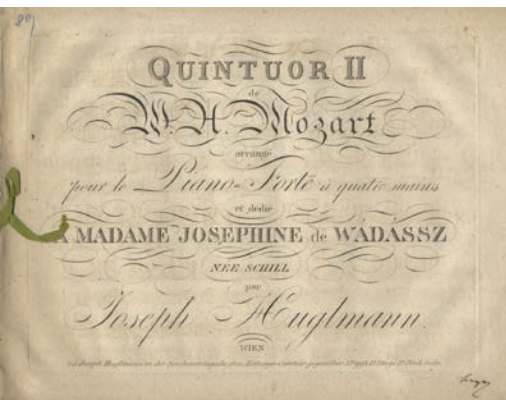 89
QUINTUOR II
de
W. A. Mozart
arrangé
pour le Piano-Forté à quatre mains
et dédié
A MADAME JOSEPHINE de WADASSZ
NEE SCHILL
par
Joseph Huglmann.
WIEN
bei Joseph Huglmann in der